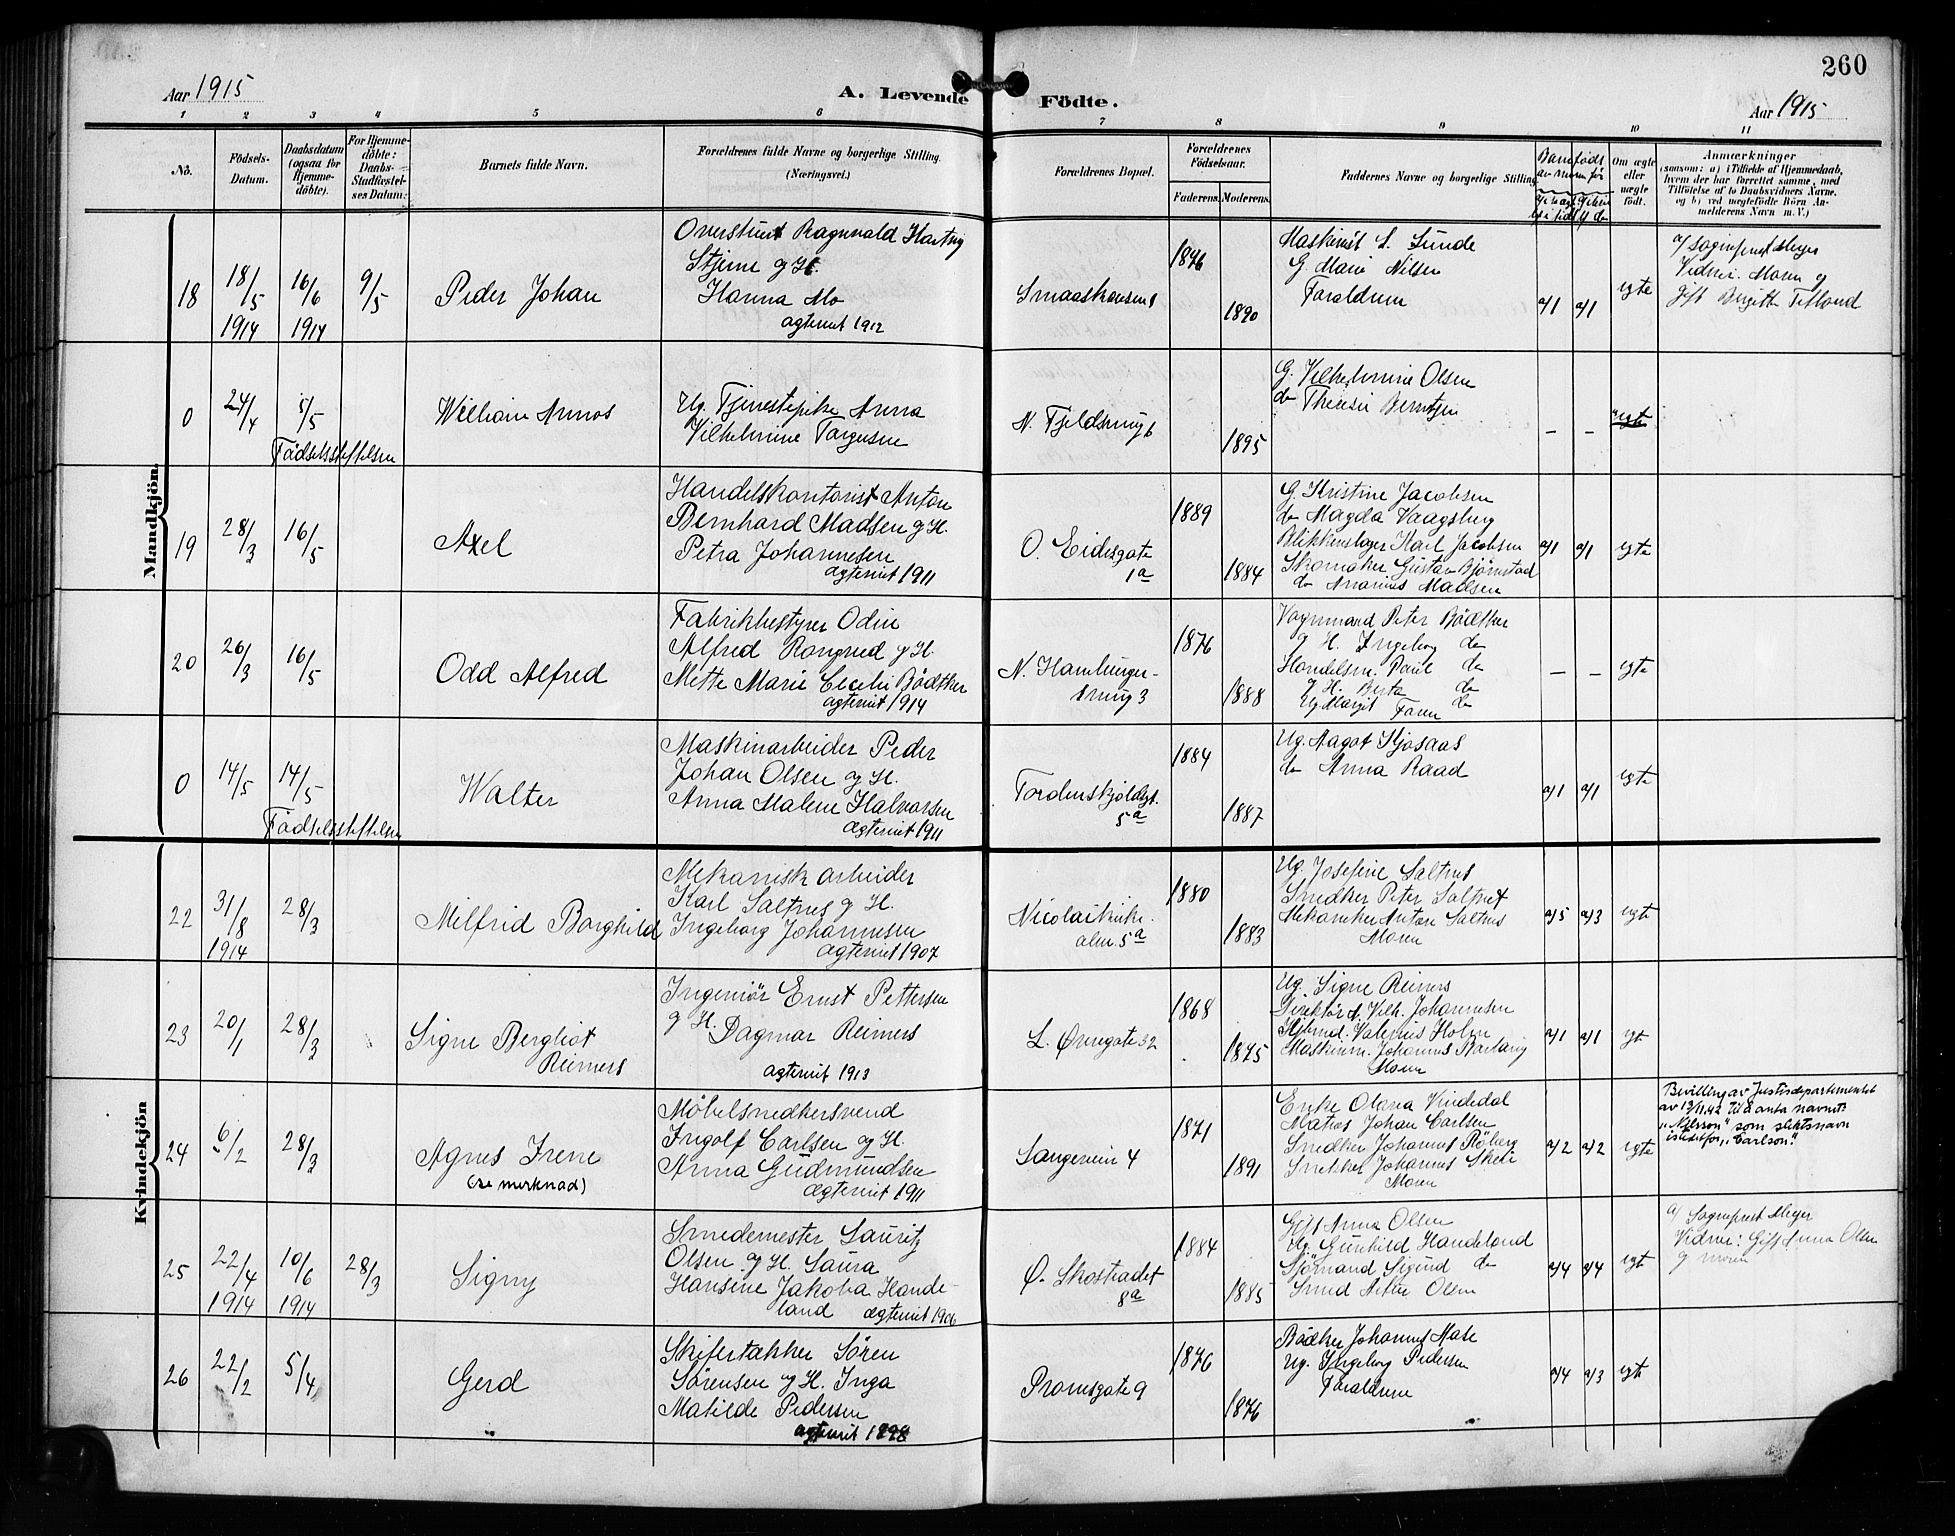 260
Aar 1915
A. Levende Födte.
Aar 1915
1 2 3 4 5 6 7 8 9 10 11
No.
Födsels-Datum.
Daabsdatum
(ogsaa for
Hjemme-
döbte).
For Hjemme-
döbte:
Daabs-
Stadfæstel-
ses Datum.
Barnets fulde Navn.
Forældrenes fulde Navne og borgerlige Stilling.
(Næringsvei.)
Forældrenes Bopæl.
Forældrenes
Födselsaar.
Faderens. Moderens.
Faddernes Navne og borgerlige Stilling
Om ægte
eller
uægte
født.
Anmærkninger
(saasom: a) i Tilfælde af Hjemmedaab,
hvem der har forrettet samme, med
Tilföielse af to Daabsvidners Navne,
og b) ved uægtefödte Börn An-
melderens Navn m. V.)
Mandkjön.
18
18/5
1914
16/6
1914
9/5
Peder Johan
Ragnvald Hartvig
Stjerne g H.
Hanna Mo
ægteviet 1912
1876
1890
Maskinist S. Sunde
G. Marie Nilsen
Forældrene
a/1 a/1
egte
a/ Sogneprest Meyer
Vidner: Moren g
gift Birgitte
0
24/4
5/5
Fødselsstiftelsen
William Annos
Ug. Tjenestepike Anna
Vilhelmine Torgersen
N. Fjeldsmug 6
1895
G. Vilhelmine Olsen
do Therese Berntsen
– –
uegte
19
28/3
16/5
Axel
Handelskontorist Anton
Bernhard Madsen g H.
Petra Johannesen
ægteviet 1911
O. Eidesgate
1a
1889
1884
G. Kristine Jacobsen
do Magda Vaagsberg
Blikkenslager Karl Jacobsen
Skomaker Gustav Bjørnstad
do Madsen
a/1 a/1
egte
20
26/3
16/5
Odd Alfred
Fabrikbestyrer Odin
Alfred Rongved g H.
Mette Marie Cecilie Bødtker
ægteviet 1914
N. Hamburger-
smug 3
1876
1888
Vognmand Peter Bødtker
g H. Ingeborg do
Handelsm. Paul do
g H. Berta do
Ug Margit do
Faren
– –
egte
0
14/5
14/5
Fødselsstiftelsen
Walter
Maskinarbeider Peder
Johan Olsen og H.
Anna Malene Halvorsen
ægteviet 1911
Tordenskjoldsgt.
5a
1884
1887
Ug. Aagot
do Anna Raad
a/1 a/1
egte
Kvindekjön
22
31/8
1914
28/3
Milfrid Borghild
Mekanisk arbeider
Karl Saltnes g H.
Ingeborg Johannesen
ægteviet 1907
Nicolaikirke-
alm. 5a
1880
1883
Ug. Josefine Saltnes
Snedker Peter Saltnes
Mekaniker Anton Saltnes
Moren
a/5 a/3
egte
23
20/1
28/3
Signe Bergliot
Reimers
Ingeniör Ernst Pettersen
g H. Dagmar Reimers
ægteviet 1913
L. Øvregate 32
1868
1875
Ug. Signe Reimers
Direktør A. Vilh. Johannesen
Valerius Holm
Maskinm. Johannes
Moren
a/1 a/1
egt
24
6/2
28/3
Agnes Irene
(se merknad)
Møbelsnedkersvend
Ingolf Carlsen og H.
Anna Gudmundsen
ægteviet 1911
Langeveien 4
1871
1891
Enke Olava Vindedal
Matros Johan Carlsen
Snedker Johannes Røberg
Snekker Johannes Skeie
Moren
a/2 a/2
egte
Bevilling av Justisdepartementet
av 13/11.42 til å anta navnet
"Nilsson" som slektsnavn
istedetfor "Carlson".
25
22/4
1914
10/6
1914
28/3
Signy
Smedemester Lauritz
Olsen og H. Laura
Hansine Jakoba Hande-
land ægteviet 1906
Ø. Skostrædet
8a
1884
1885
Gift Anna Olsen
Ug. Gunhild Handeland
Sjømand Sigurd do
Smed Olsen
a/4 a/4
egt
a/ Sogneprest Meyer
Vidner: Gift Anna Olsen
g moren
26
22/2
5/4
Gerd
Skifertækker Sören
Sörensen og H. Inga
Matilde Pedersen
ægteviet 1898
Promsgate 9
1876
1876
Bödker Johannes
Ug. Ingeborg Pedersen
Forældrene
a/4 a/3
egt